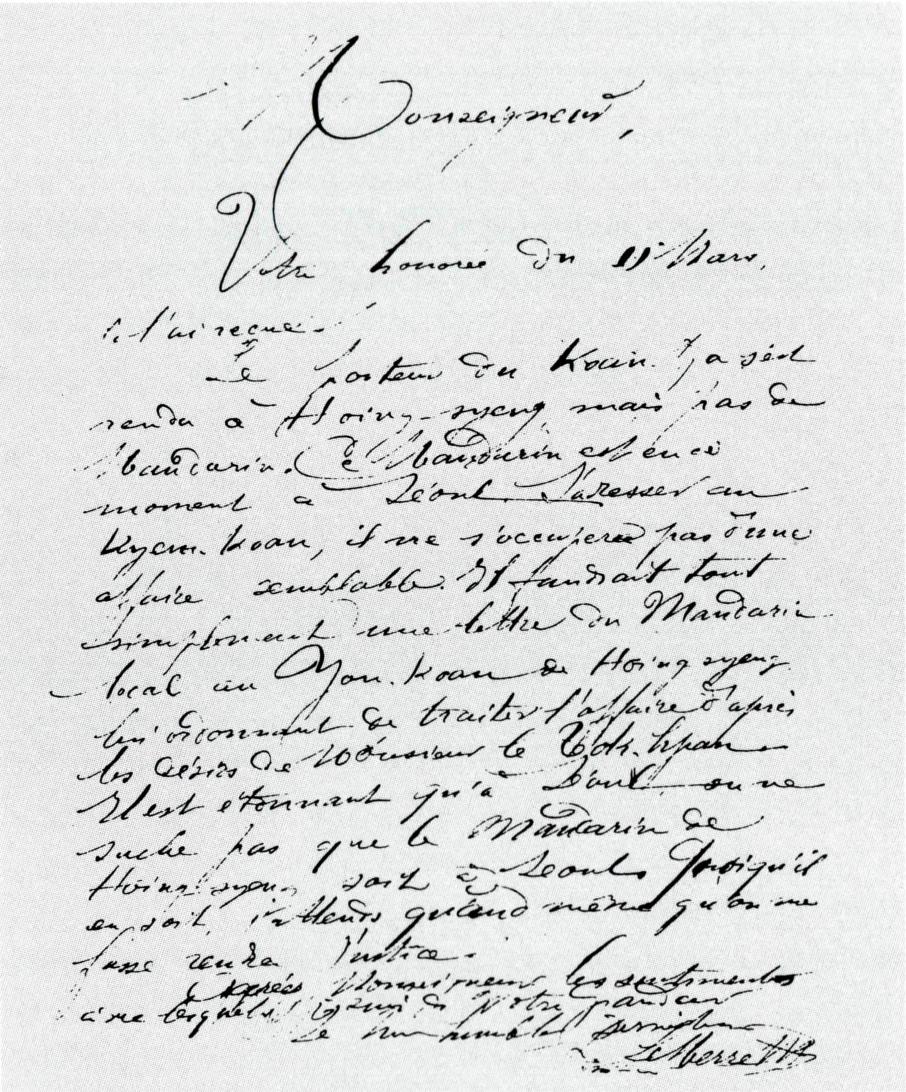 Monseigneur,
Votre honorée du 15 Mars,
je l'ai reçue.
Le porteur du Koan-ja s'est
rendu à Hoing-syeng mais pas de
Mandarin. Ce Mandarin est en ce
moment à Séoul. S'adresser au
Kyem-Koan, il ne s'occupera pas d'une
affaire semblable. Il faudrait tout
simplement une lettre du Mandarin
local au Koan de Hoing-syeng
lui ordonnant de traiter l'affaire d'après
les désirs de Monsieur le Tok-hpan.
Il est étonnant qu'à Séoul on ne
sache pas que le Mandarin de
Hoing-syeng soit à Séoul. Quoiqu'il
en soit, j'attends quand même qu'on me
fasse rendre justice.
Agréez Monseigneur les sentiments
avec lesquels je suis de Votre Grandeur
le très humble serviteur
Le Merre